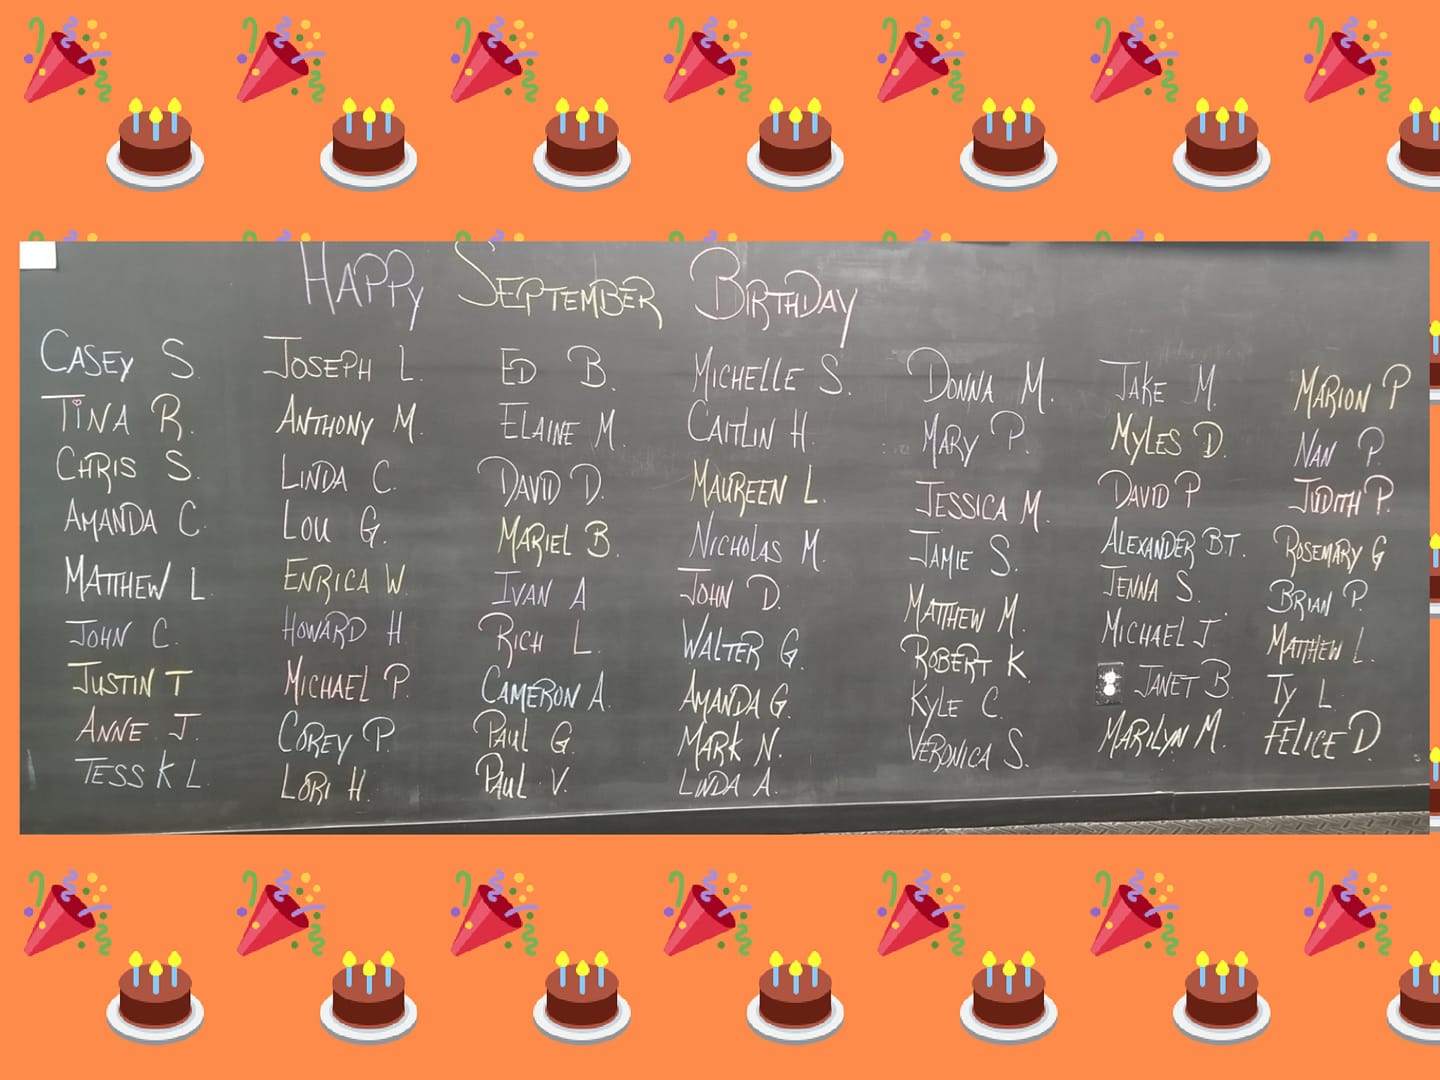 HAPPY SEPTEMBER BIRTHDAY
CASEY S.
TINA R.
CHRIS S.
AMANDA C.
MATTHEW L.
JOHN C.
JUSTIN T
ANNE J.
TESS K L.
JOSEPH L.
ANTHONY M.
LINDA C.
LOU G.
ENRICA W.
HOWARD H.
MICHAEL P.
COREY P.
LORI H.
ED B.
ELAINE M.
DAVID D.
MARIEL B.
IVAN A
RICH L.
CAMERON A.
PAUL G.
PAUL V.
MICHELLE S.
CAITLIN H.
MAUREEN L.
NICHOLAS M.
JOHN D.
WALTER G.
AMANDA G.
MARK N.
LINDA A.
DONNA M.
MARY P.
JESSICA M.
JAMIE S.
MATTHEW M.
ROBERT K.
KYLE C.
VERONICA S.
JAKE M.
MYLES D.
DAVID P
ALEXANDER B.T.
JENNA S.
MICHAEL J.
JANET B.
MARILYN M.
MARION P
NAN P.
JUDITH P.
ROSEMARY G
BRIAN P.
MATTHEW L.
TY L.
FELICE D.